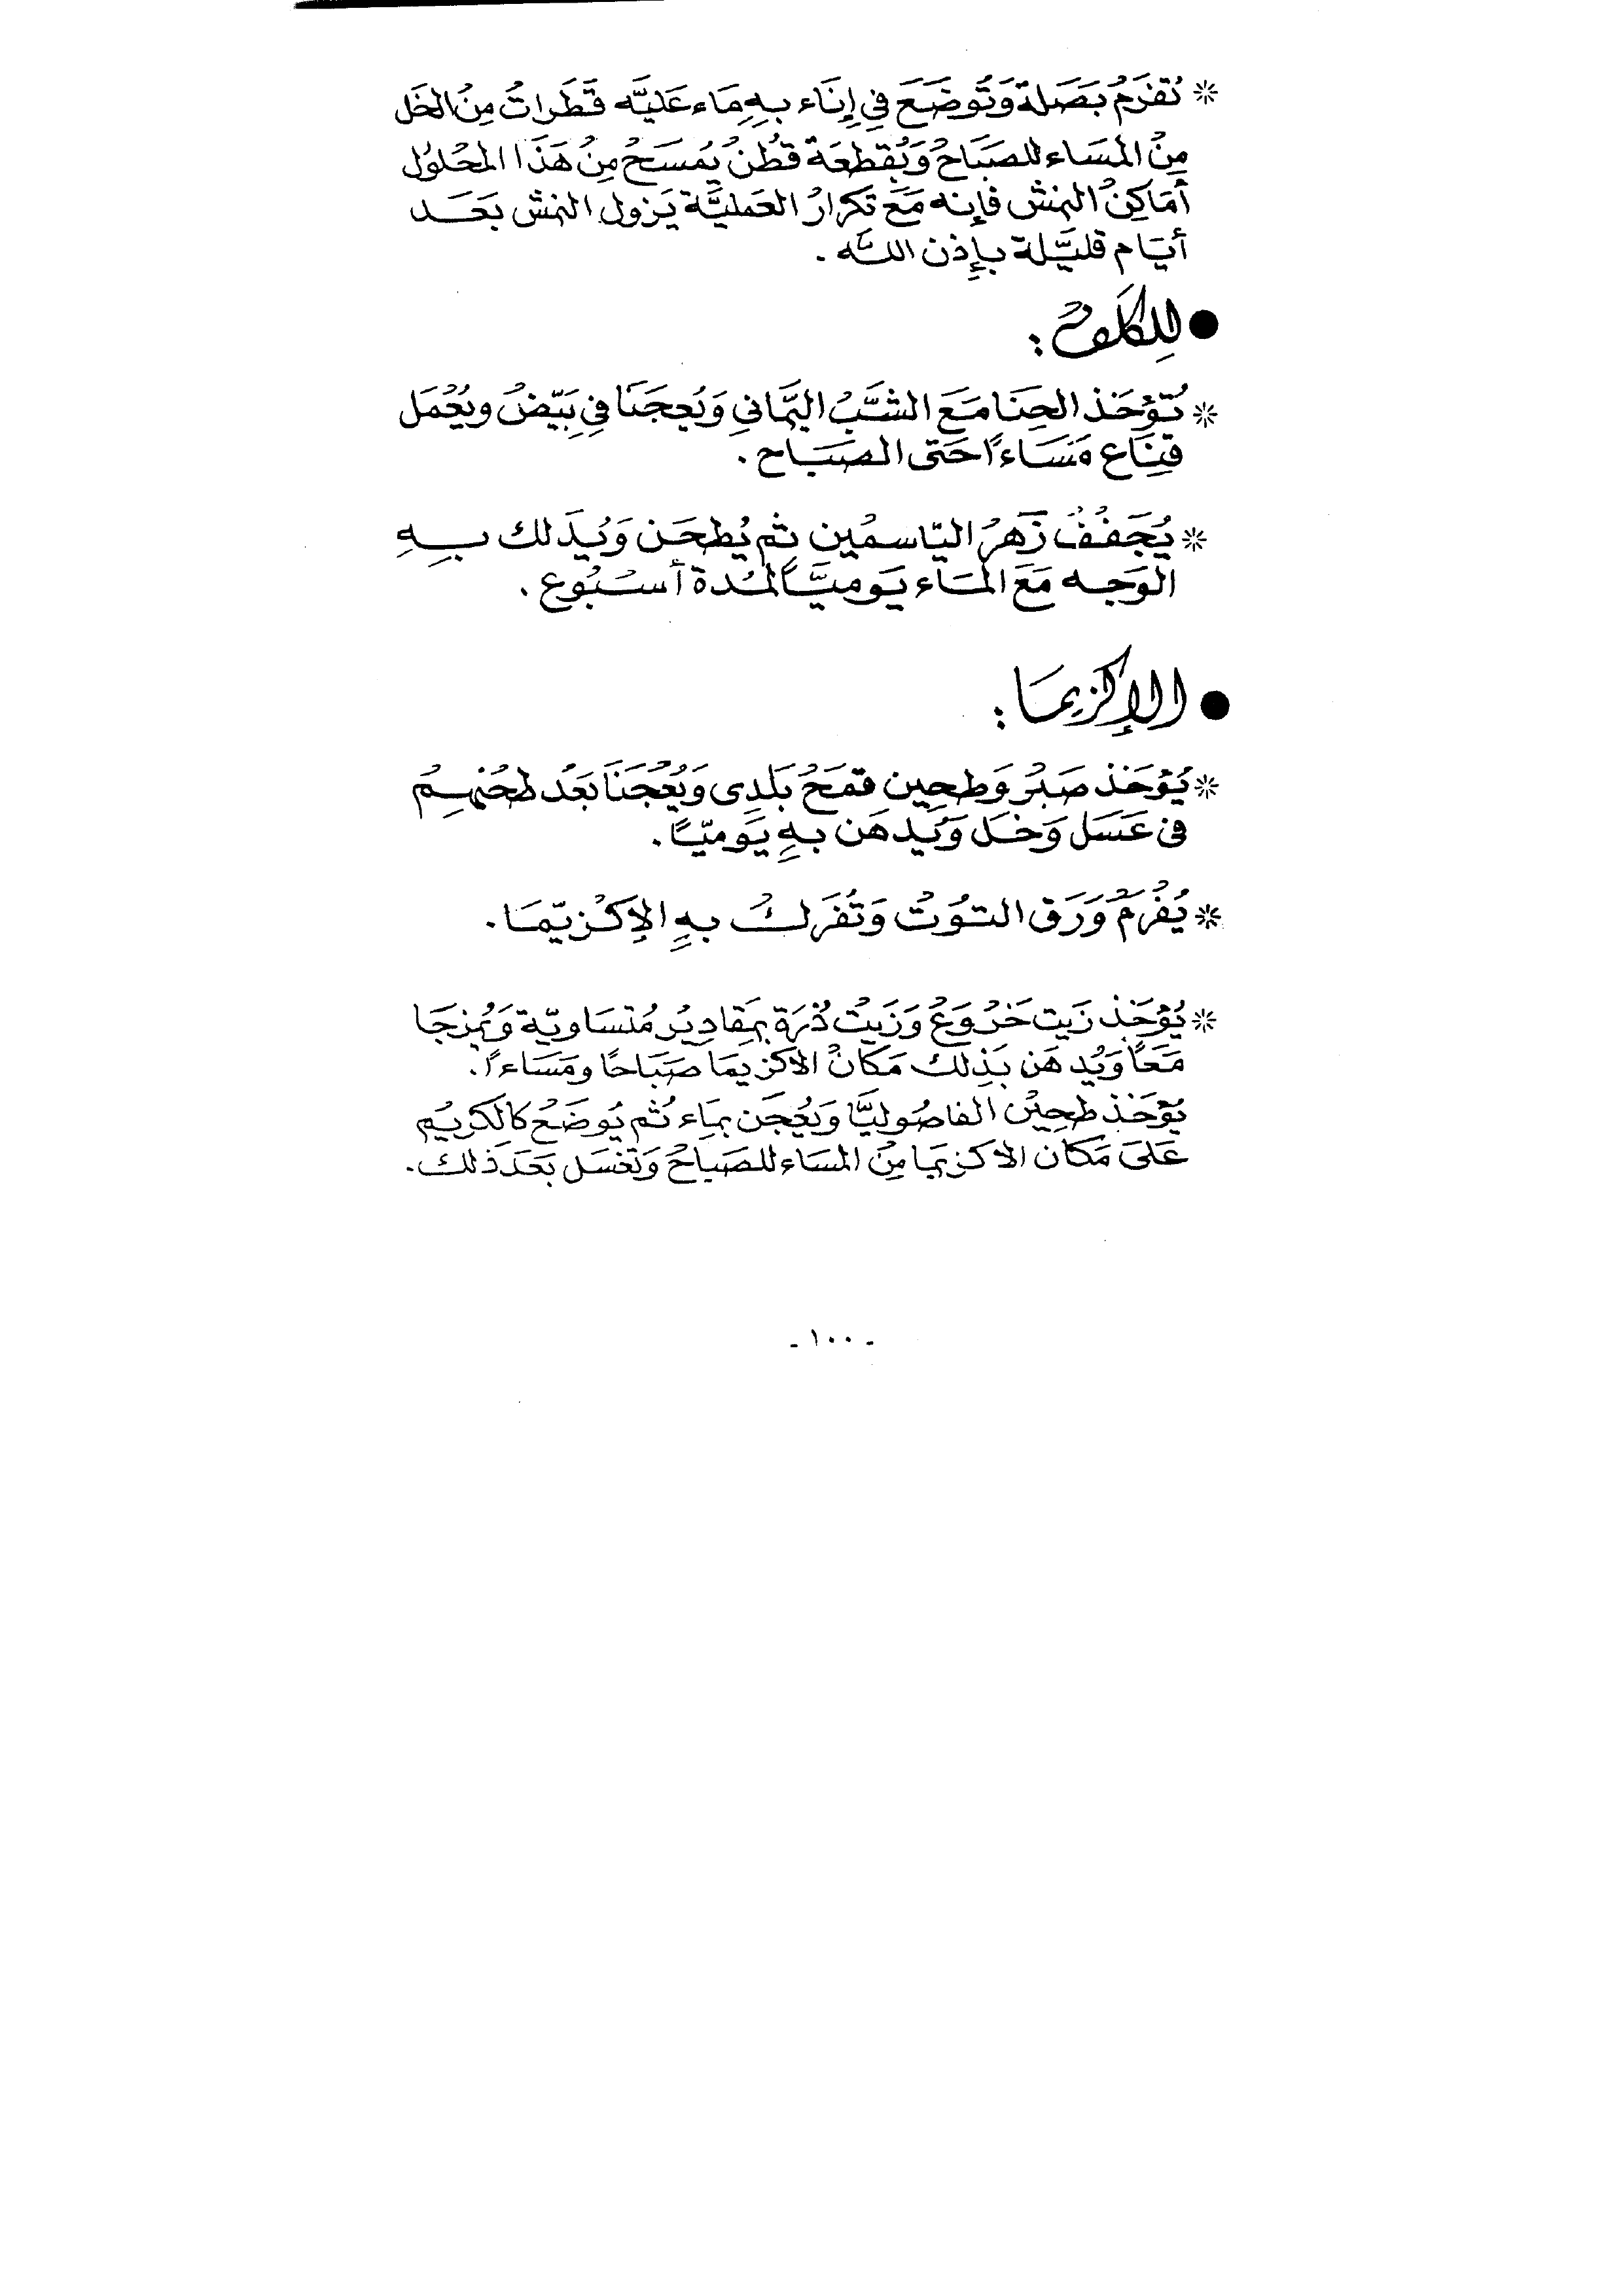 * تُفرَمُ بَصَلة وَتُوضَعَ فِي إِنَاء بِهِ مَاء عَليَّه قَطَراتُ مِنُ الخَل
مِنُ المَسَاء للصَبَاحُ وَبُقطعَة قطُنُ يُمسَحُ مِنُ هَذَا المَحُلوُل
أمَاكِنُ النمش فإنه مَعَ تَكرارُ العَمليَّة يَزول النمش بَعَد
أيَام قليَّلة بإِذن اللَّه .
● لِلكَلَفُ :
* تُؤخَذ الحِنَا مَعَ الشَّبُ اليَماني وَيُعجَنَا فِي بَيّضُ ويعُمَل
قِنَاع مَسَاءاً حَتى الصَبَاح .
* يُجَففُ زَهرُ اليّاسمُين ثم يُطحَن وَيُدَلك بِهِ
الوَجه مَعَ المَاء يَوميَّاً لمُدة أسبُوع .
● الإكزيمَا :
* يُؤخَذ صَبرُ وَطحِين قمَحُ بَلَدِى وَيُعُجَنَا بَعَد طحُنهِمُ
فى عَسَل وَخَل وَيُدهَن بهِ يَوميّاً.
* يُفُرَمُ وَرَق التوُتُ وَتُفَركُ بهِ الإكُزيّمَا.
* يُؤخَذ زَيت خَرُوَعُ وَزَيتُ ذُرَة بمَقادِيرُ مُتسَاويّة وَيُمزجَا
مَعَاً وَيُدهَن بَذِلك مَكَانُ الاكزيمَا صَبَاحًا ومَسَاءاً.
يؤخَذ طحِيُن الفاصُوليَّا وَيَعُجَن بمَاء ثُم يُوضَعُ كالكَريُم
عَلىَ مَكَان الاكزيما مِنُ المسَاء للصَبَاحُ وَتغسَل بَعَدَ ذلك.
- ١٠٠ -